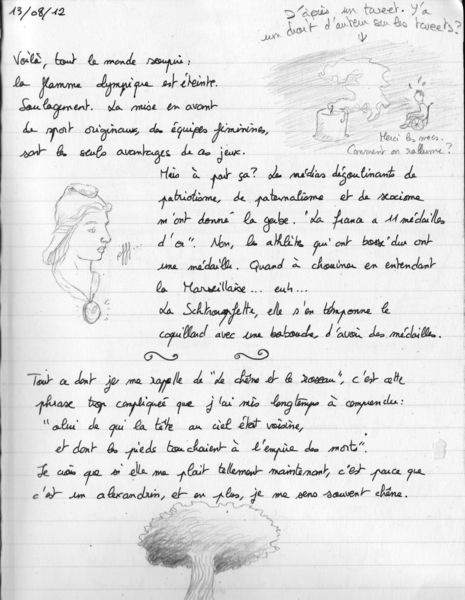 13/08/12
D'après un tweet. Y'a
un droit d'auteur sur les tweets?
Voilà, tout le monde soupire :
la flamme olympique est éteinte.
Soulagement. La mise en avant
de sport originaux, des équipes féminines,
sont les seuls avantages de ces jeux.
Merci les mecs.
Comment on rallume ?
Mais à part ça? Les médias dégoulinants de
patriotisme, de paternalisme et de sexisme
m'ont donné la gerbe. "La france a 11 médailles
d'or". Non, les athlètes qui ont bossé dur ont
une médaille. Quand à chouiner en entendant
la Marseillaise... euh...
pfff...
La Schtroumpfette, elle s'en tamponne le
coquillard avec une babouche, d'avoir des médailles.
Tout ce dont je me rappelle de "Le chêne et le roseau", c'est cette
phrase trop compliquée que j'ai mis longtemps à comprendre :
"celui de qui la tête au ciel était voisine,
et dont les pieds touchaient à l'empire des morts".
Je crois que si elle me plait tellement maintenant, c'est parce que
c'est un alexandrin, et en plus, je me sens souvent chêne.